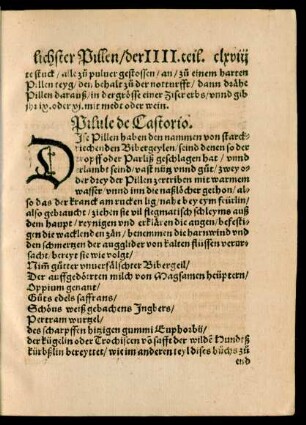 lichster Pillen/der IIII. teil. clxviij
te stuck/alle zů puluer gestossen/an/zů einem harten
Pillen teyg/den behalt zů der notturfft/dann dräht
Pillen darauß/in der grösse einer Ziserერbs/vnnd gib
jhr ix. oder vj. mit medt oder wein.
Pilule de Castorio.
DIse Pillen haben den nammen von starck
riechenden Bibergeylen/seind denen so der
tropff oder Parliß geschlagen hat/vnnd
erlambt seind/vast nütz vnnd gůt/zwey o=
der drey der Pillen zertriben mit warmem
wasser/vnnd inn die naßlöcher gethon/al=
so das der kranck am rucken lig/nahe bey eym feür/inn
also gebraucht/ziehen sie vil flegmatisch schleyms auß
dem haupt/reynigen vnd erklären die augen/befesti=
gen die wacklenden zän/benemmen die harnwind vnd
den schmertzen der augglider von kalten flüssen verur=
sacht/bereyt sie wie volgt/
Nim̄ gůtter vnuerfälschter Bibergeil/
Der auffgedörrten milch von Magsamen heüptern/
Oppium genant/
Gůts edels saffrans/
Schöns weiß gebachens Ingbers/
Pertram wurtzel/
des scharpffen hitzigen gummi Euphorbij/
der kügelin oder Trochiscen vō safft der wildē Hundts
kürbßlin bereyttet/wie im anderen teyl dises bůchs zů
end